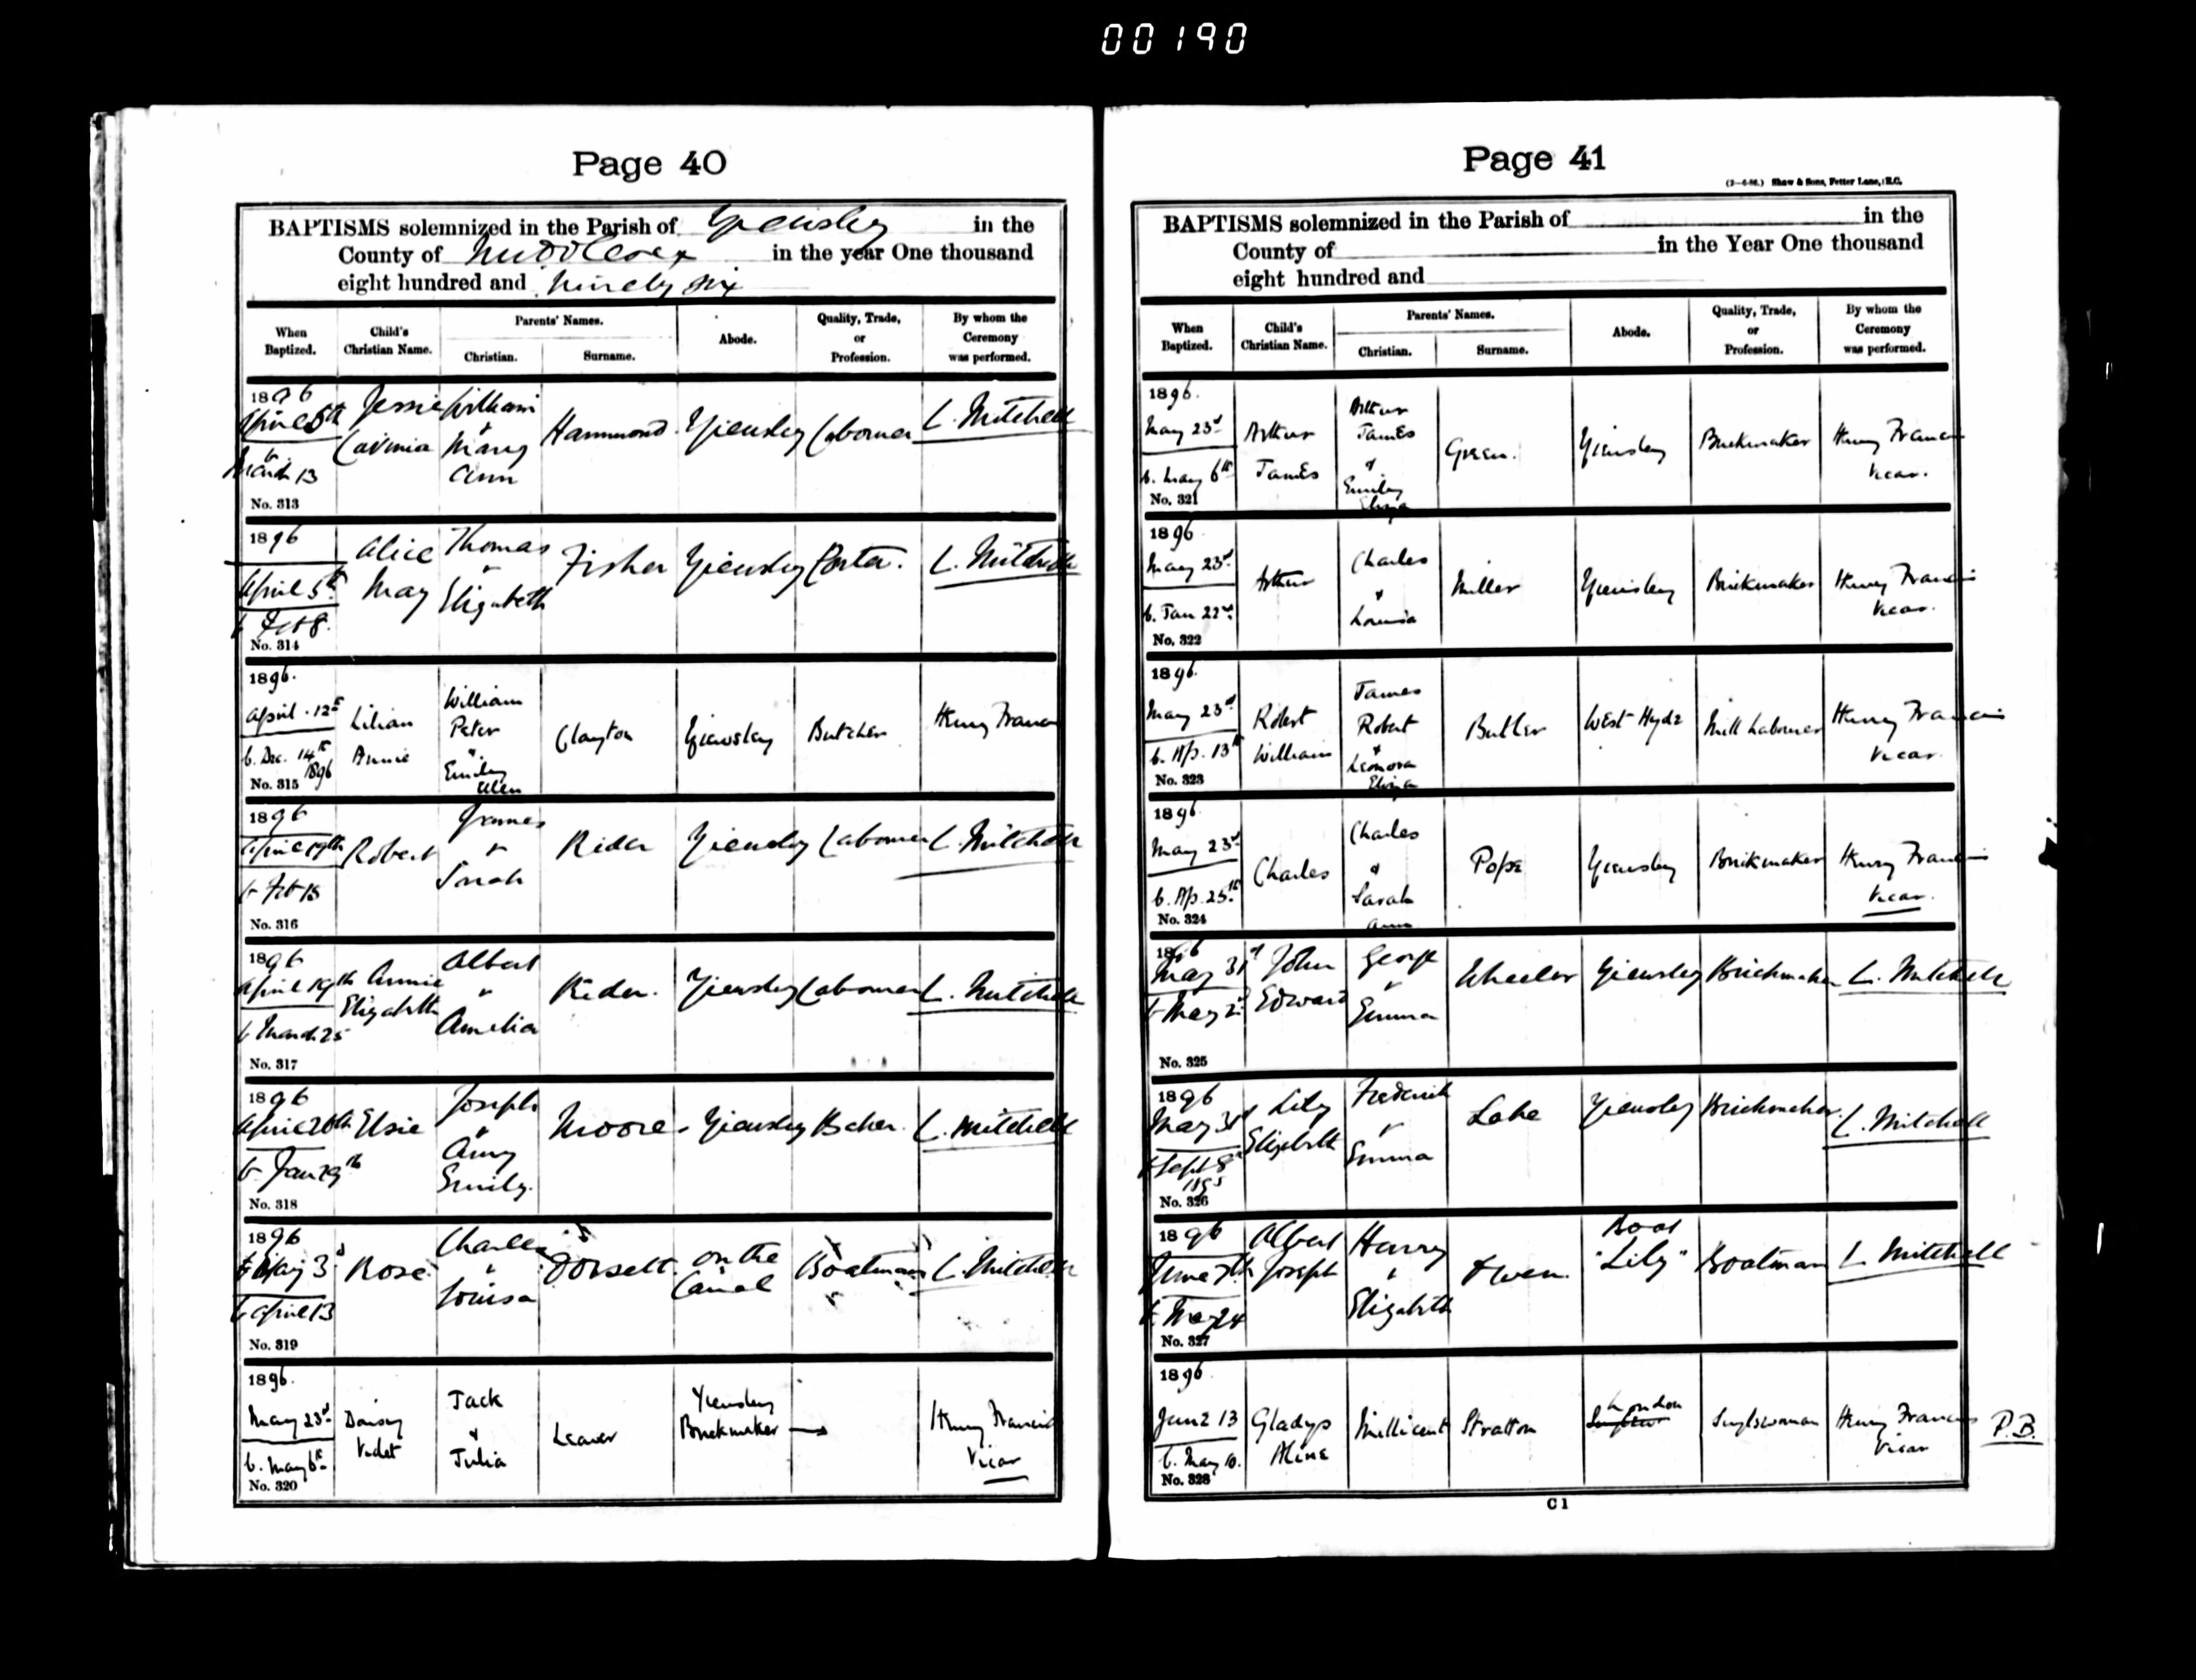 00190
Page 40
BAPTISMS solemnized in the Parish of Yiewsley in the
County of Middlesex in the year One thousand
eight hundred and ninety six
When Baptized. Child's Christian Name. Parents' Names. Christian. Surname. Abode. Quality, Trade, or Profession. By whom the Ceremony was performed.
1896 April 5th b. March 13 No. 313 Jessie Lavinia William & Mary Ann Hammond Yiewsley Labourer L. Mitchell
1896 April 5th b Feb 8. No. 314 Alice May Thomas & Elizabeth Fisher Yiewsley Porter. L. Mitchell
1896. April 12th b. Dec. 14th 1896 No. 315 Lilian Annie William Peter & Emily Ellen Clayton Yiewsley Butcher Henry Francis
1896 April 19th b Feb 18 No. 316 Robert James & Sarah Rider Yiewsley Labourer L. Mitchell
1896 April 19th b March 25 No. 317 Annie Elizabeth Albert & Amelia Rider. Yiewsley Labourer L. Mitchell
1896 April 26th b. Jan 29th No. 318 Elsie Joseph & Amy Emily. Moore. Yiewsley Baker. L. Mitchell
1896 May 3d b April 13 No. 319 Rose Charles & Louisa Dorsett. On the Canal Boatman L. Mitchell
1896. May 23rd b. May 6th No. 320 Daisy Violet Jack & Julia Leaver Yiewsley Brickmaker Henry Francis Vicar
Page 41
(2—6-86.) Shaw & Sons, Fetter Lane, E.C.
BAPTISMS solemnized in the Parish of in the
County of in the Year One thousand
eight hundred and
When Baptized. Child's Christian Name. Parents' Names. Christian. Surname. Abode. Quality, Trade, or Profession. By whom the Ceremony was performed.
1896. May 23rd b. May 6th No. 321 Arthur James Arthur James & Emily Eliza Green. Yiewsley Brickmaker Henry Francis Vicar.
1896 May 23rd b. Jan 22nd No. 322 Arthur Charles & Louisa Miller Yiewsley Brickmaker Henry Francis Vicar.
1896. May 23rd b. Ap. 13th No. 323 Robert William James Robert & Leonora Eliza Butler West Hyde Mill Labourer Henry Francis Vicar.
1896. May 23rd b. Ap. 25th No. 324 Charles Charles & Sarah Ann Pope Yiewsley Brickmaker Henry Francis Vicar.
1896 May 31st b May 2d No. 325 John Edward George & Emma Wheeler Yiewsley Brickmaker L. Mitchell
1896 May 31st b Sept 8 1895 No. 326 Lily Elizabeth Frederick & Emma Lake Yiewsley Brickmaker. L. Mitchell
1896 June 7th b. May 24 No. 327 Albert Joseph Harry & Elizabeth Owen. Boat "Lily" Boatman L Mitchell
1896 June 13 b. May 10. No. 328 Gladys Aline Millicent Stratton London Singlewoman Henry Francis Vicar P.B.
C 1